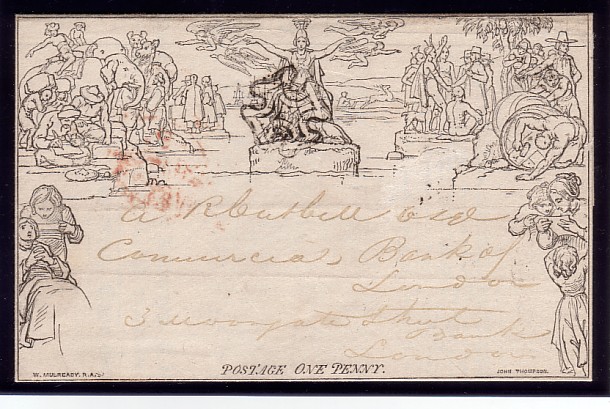 A R Cutbill Esq
Commercial Bank of
London
3 Moorgate Street
Bank
London
W. MULREADY. R.A.
POSTAGE ONE PENNY.
JOHN THOMPSON.